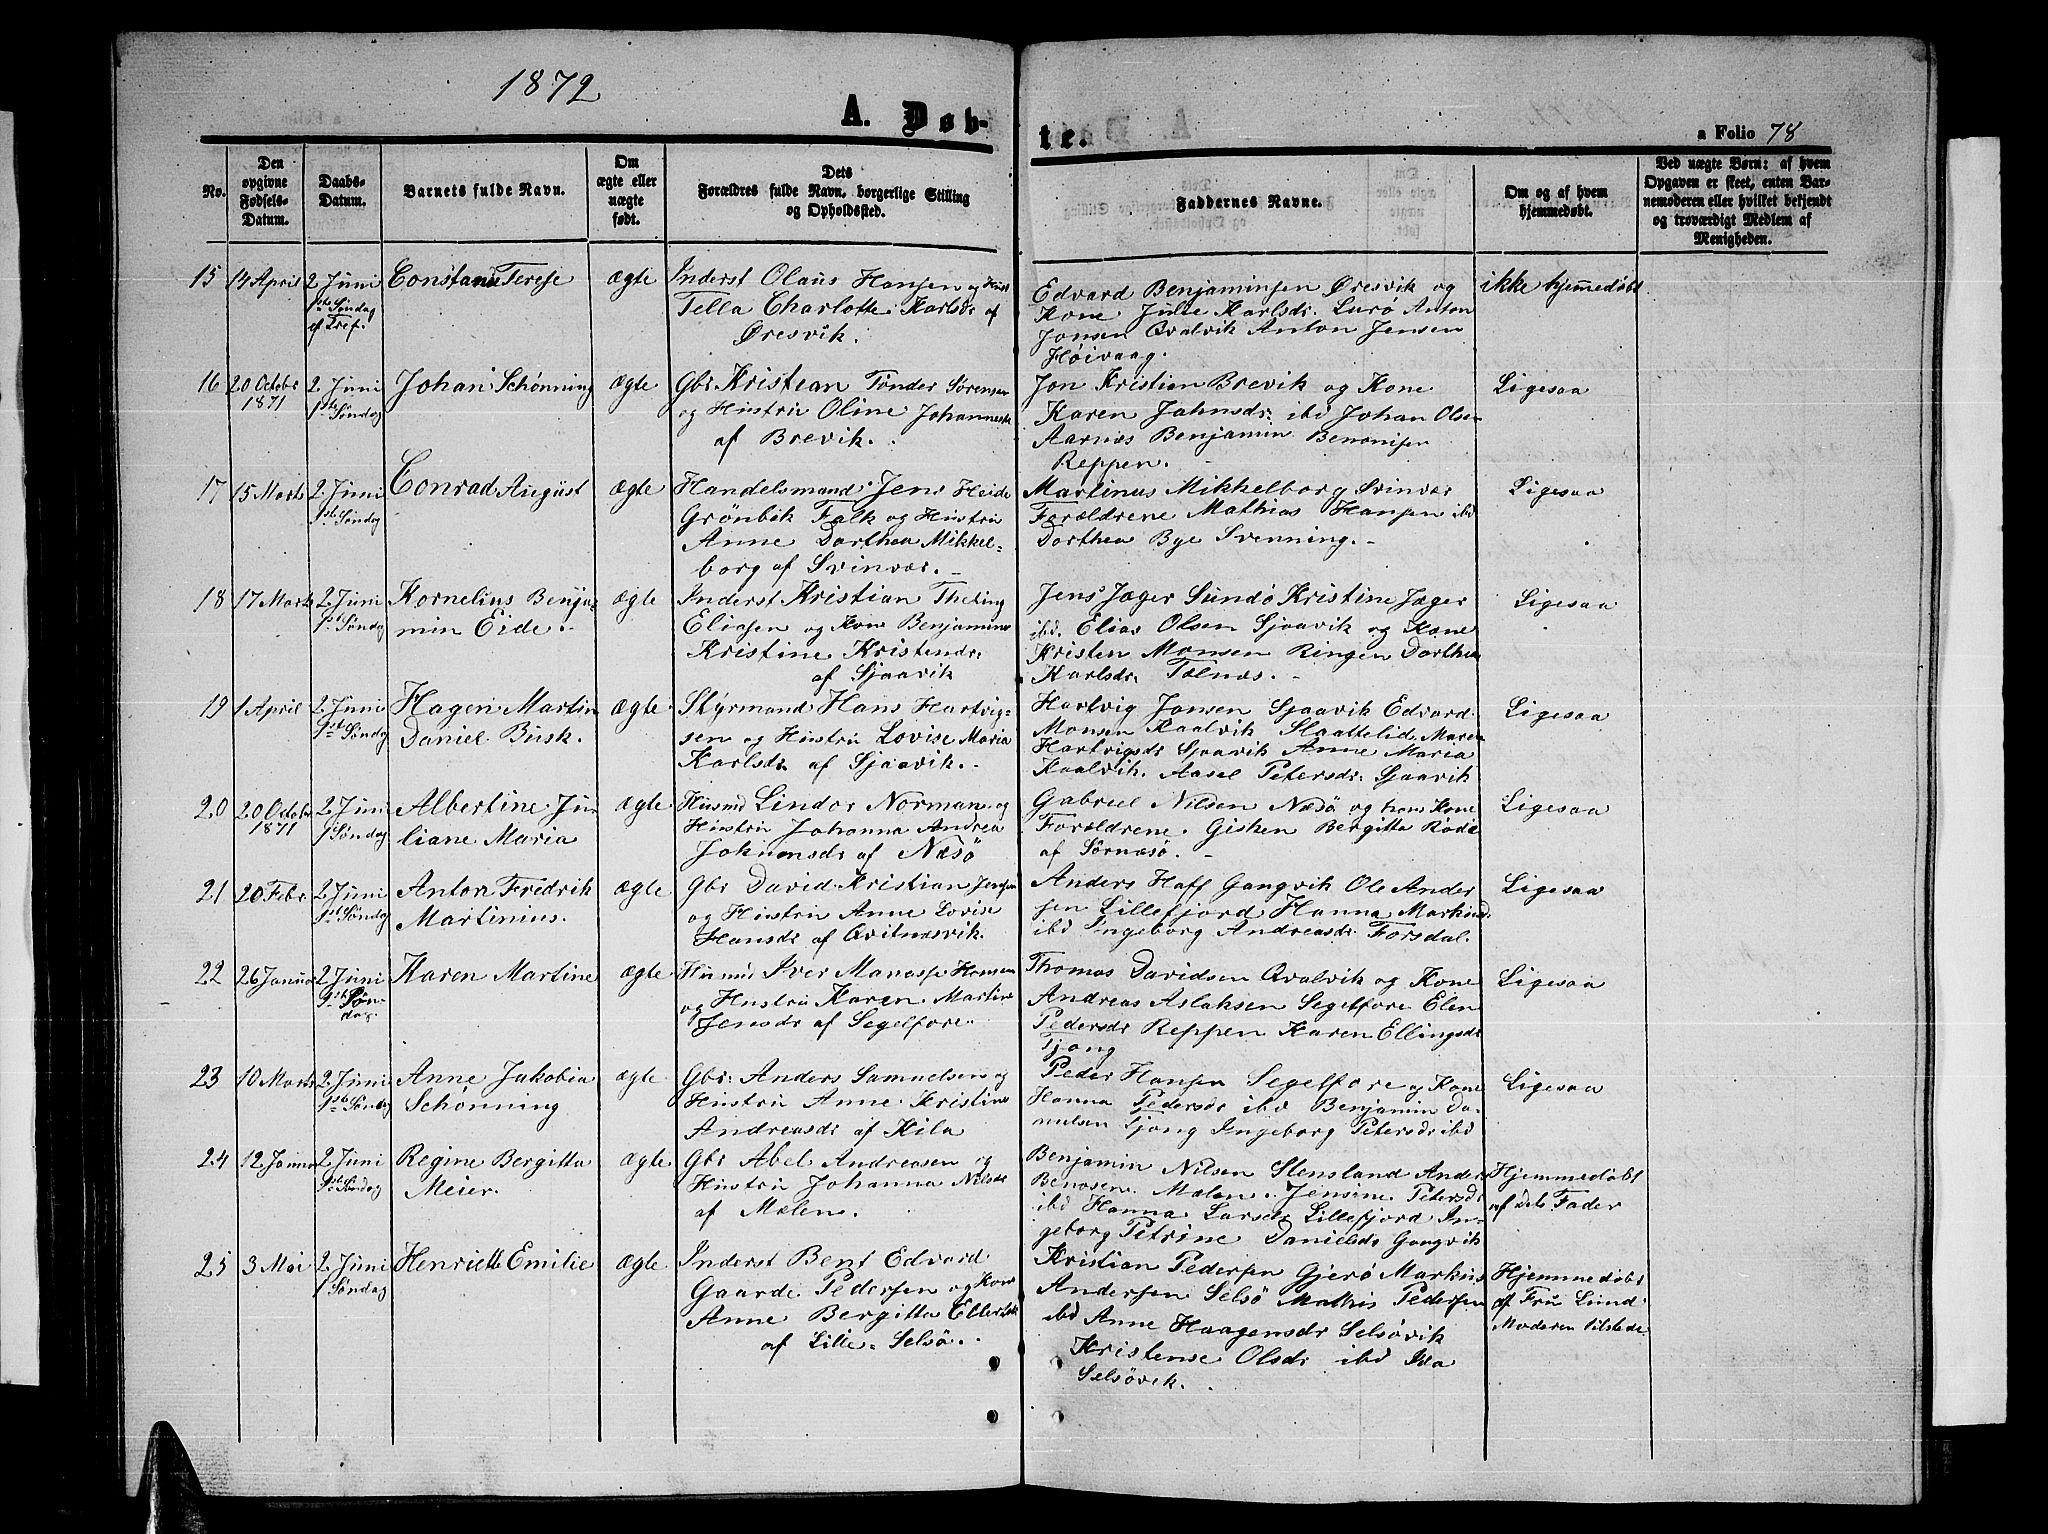 1872
A. Døb-
te.
a Folio 78
No.
Den opgivne Fødsels-Datum.
Daabs-Datum.
Barnets fulde Navn.
Om ægte eller uægte født.
Dets Forældres fulde Navn, borgerlige Stilling og Opholdssted.
Faddernes Navne.
Om og af hvem hjemmedøbt.
Ved uægte Børn: af hvem Opgaven er skeet, enten Barnemoderen eller hvilket bekjendt og troværdigt Medlem af Menigheden.
15 14 April 2 Juni 1ste Søndag ef Tref.
Terese
ægte
Inderst Olaus Hansen og
Tella Charlotte Karlsdr af
Øresvik.
Edvard Benjaminsen Øresvik og
Kone Julie Karlsdr. Lurø Anton
Jonsen Qvalvik Anton Jensen
Høivaag.
ikke hjemmedøbt
16 20 Octobr 1871 2 Juni 1ste Søndag
Johan Schønning
ægte
Gbr Kristian Tønder Sørensen
og Hustru Oline
af Brevik.
Jon Kristian Brevik og Kone
Karen Jahnsdr. ibd Johan Olsen
Aarnæs Benjamin Benonisen
Reppen.
Ligesaa
17 15 Marts 2 Juni 1ste Søndag
Conrad August
ægte
Handelsmand Jens Heide
Grønbek Falk og Hustru
Anne Dorthea Mikkel-
borg af Svinvær.
Martinus Mikkelborg Svinvær
Forældrene Mathias Hansen ibd
Dorthea Bye Svenning.
Ligesaa
18 17 Marts 2 Juni 1ste Søndag
Kornelius Benja-
min Eide.
ægte
Inderst Kristian Theting
Eliasen og Kone
Kristine Kristensdr.
af Sjaavik
Jens Jæger Sundø Kristine Jæger
ibd. Elias Olsen Sjaavik og Kone
Kristen Monsen Ringen Dorthea
Karlsdr.
Ligesaa
19 1 April 2 Juni 1ste Søndag
Hagen Martin
Daniel Busk.
ægte
Styrmand Hans Hartvig-
sen og Hustru Lovise Maria
Karlsdr af Sjaavik.
Hartvig Jonsen Sjaavik Edvard
Monsen Kaalvik Slattelid Maren
Hartvigsdr Sjaavik Anne Maria
Kaalvik. Aasel Petersdr. Sjaavik
Ligesaa
20 20 Octobr 1871 2 Juni 1 Søndag
Albertine Ju-
liane Maria
ægte
Husmd Lindor Norman og
Hustru Johanna Andrea
af Næsø
Gabriel Nilsen Næsø og hans Kone
Forældrene. Gisken Bergitta
af Sørnæsø.
Ligesaa
21 20 Febr 2 Juni 1st Søndag
Anton Fredrik
Martinius.
ægte
Gbr David Kristian Jensen
og Hustru Anne Lovise
Hansdr af Qvitnæsvik.
Anders Haff Gangvik Ole Ander
sen Lillefjord Hanna
ibd Ingeborg Andreasdr. Forsdal.
Ligesaa
22 26 Januar 2 Juni 1st Søn-
dag.
Karen Martine
ægte
Husmd Iver Manasse Hansen
og Hustru Karen Martine
Jensdr af Segelfore.
Thomas Davidsen Qvalvik og Kone
Andreas Aslaksen Segelfore Elen
Pedersdr Reppen Karen Ellingsdr
Tjong
Ligesaa
23 10 Marts 2 Juni 1st Søndag
Anne Jakobia
Schønning
ægte
Gbr. Anders Samuelsen og
Hustru Anne Kristine
Andreasdr af Kila
Peder Hansen Segelfore og Kone
Hanna Pedersdr ibd Benjamin Da-
nielsen Tjong Ingeborg Petersdr ibd
Ligesaa
24 12 Januar 2 Juni 1st Søndag
Regine Bergitta
Meier.
ægte
Gbr Abel Andreasen og
Hustru Johanna Nilsdr
af Mælen.
Benjamin Nilsen Stensland Anders
Mælen. Jensine Petersdr
ibd Hanna Larsdr Lillefjord In-
geborg Petrine Danielsdr Gangvik
Hjemmedøbt
af dets Fader
25 3 Mai 2 Juni 1 Søndag
Henriette Emilie
ægte
Inderst Bent Edvard
Gaarde Pedersen og Kone
Anne Bergitta
af Lille. Selsø.
Kristian Pedersen Gjerø Markus
Andersen Selsø Mathis Pedersen
ibd Anne Haagensdr Selsøvik
Kristense Olsdr ibd Ida
Selsøvik.
Hjemmedøbt
af Fru Lund
Moderen tilstede